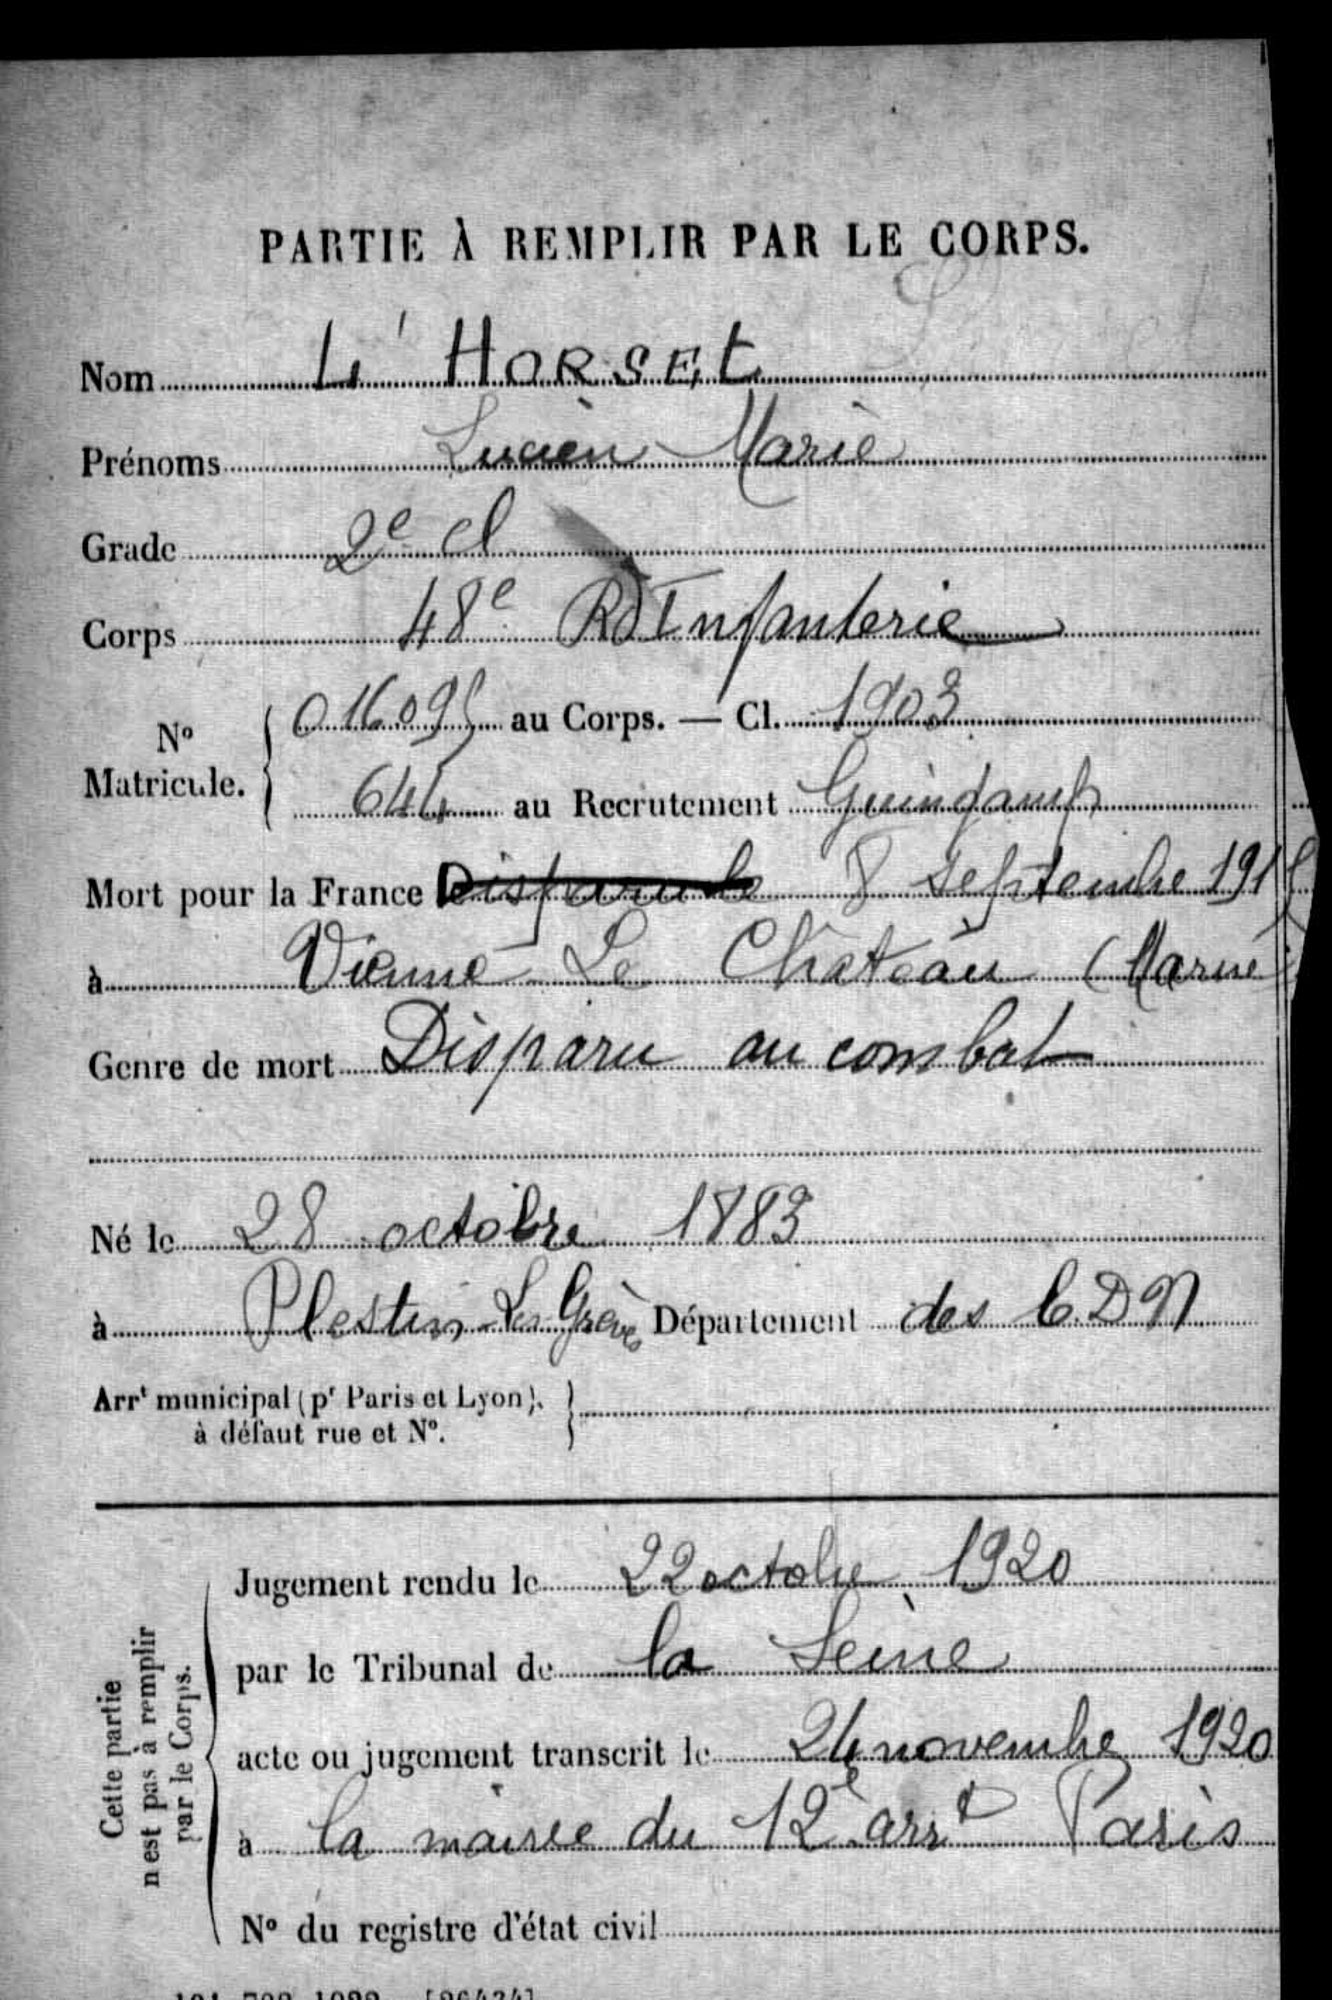 PARTIE À REMPLIR PAR LE CORPS.
Nom L'HORSET
Prénoms Lucien Marie
Grade 2e cl
Corps 48e R d'Infanterie
No Matricule. 016095 au Corps. — Cl. 1903
644 au Recrutement Guingamp
Mort pour la France Disparu le 8 septembre 1915
à Vienne Le Château (Marne)
Genre de mort Disparu au combat
Né le 28 octobre 1883
à Plestin-Les Grèves Département des C.D N
Arrt municipal (pr Paris et Lyon),
à défaut rue et No.
Cette partie
n'est pas à remplir
par le Corps.
Jugement rendu le 22 octobre 1920
par le Tribunal de la Seine
acte ou jugement transcrit le 24 novembre 1920
à la mairie du 12e arrt Paris
No du registre d'état civil